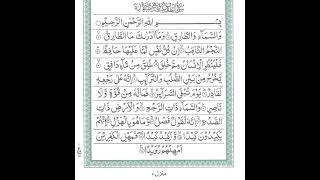 بِسْمِ اللهِ الرَّحْمٰنِ الرَّحِيْمِ
وَالسَّمَآءِ وَالطَّارِقِ ۝ وَمَآ اَدْرٰىكَ مَا الطَّارِقُ ۝
النَّجْمُ الثَّاقِبُ ۝ اِنْ كُلُّ نَفْسٍ لَّمَّا عَلَيْهَا حَافِظٌ ۝
فَلْيَنْظُرِ الْاِنْسَانُ مِمَّ خُلِقَ ۝ خُلِقَ مِنْ مَّآءٍ دَافِقٍ ۝
يَّخْرُجُ مِنْۢ بَيْنِ الصُّلْبِ وَالتَّرَآئِبِ ۝ اِنَّهٗ عَلٰى رَجْعِهٖ
لَقَادِرٌ ۝ يَوْمَ تُبْلَى السَّرَآئِرُ ۝ فَمَا لَهٗ مِنْ قُوَّةٍ وَّلَا
نَاصِرٍ ۝ وَالسَّمَآءِ ذَاتِ الرَّجْعِ ۝ وَالْاَرْضِ ذَاتِ
الصَّدْعِ ۝ اِنَّهٗ لَقَوْلٌ فَصْلٌ ۝ وَّمَا هُوَ بِالْهَزْلِ ۝ اِنَّهُمْ
يَكِيْدُوْنَ كَيْدًا ۝ وَّاَكِيْدُ كَيْدًا ۝ فَمَهِّلِ الْكٰفِرِيْنَ
اَمْهِلْهُمْ رُوَيْدًا ۝